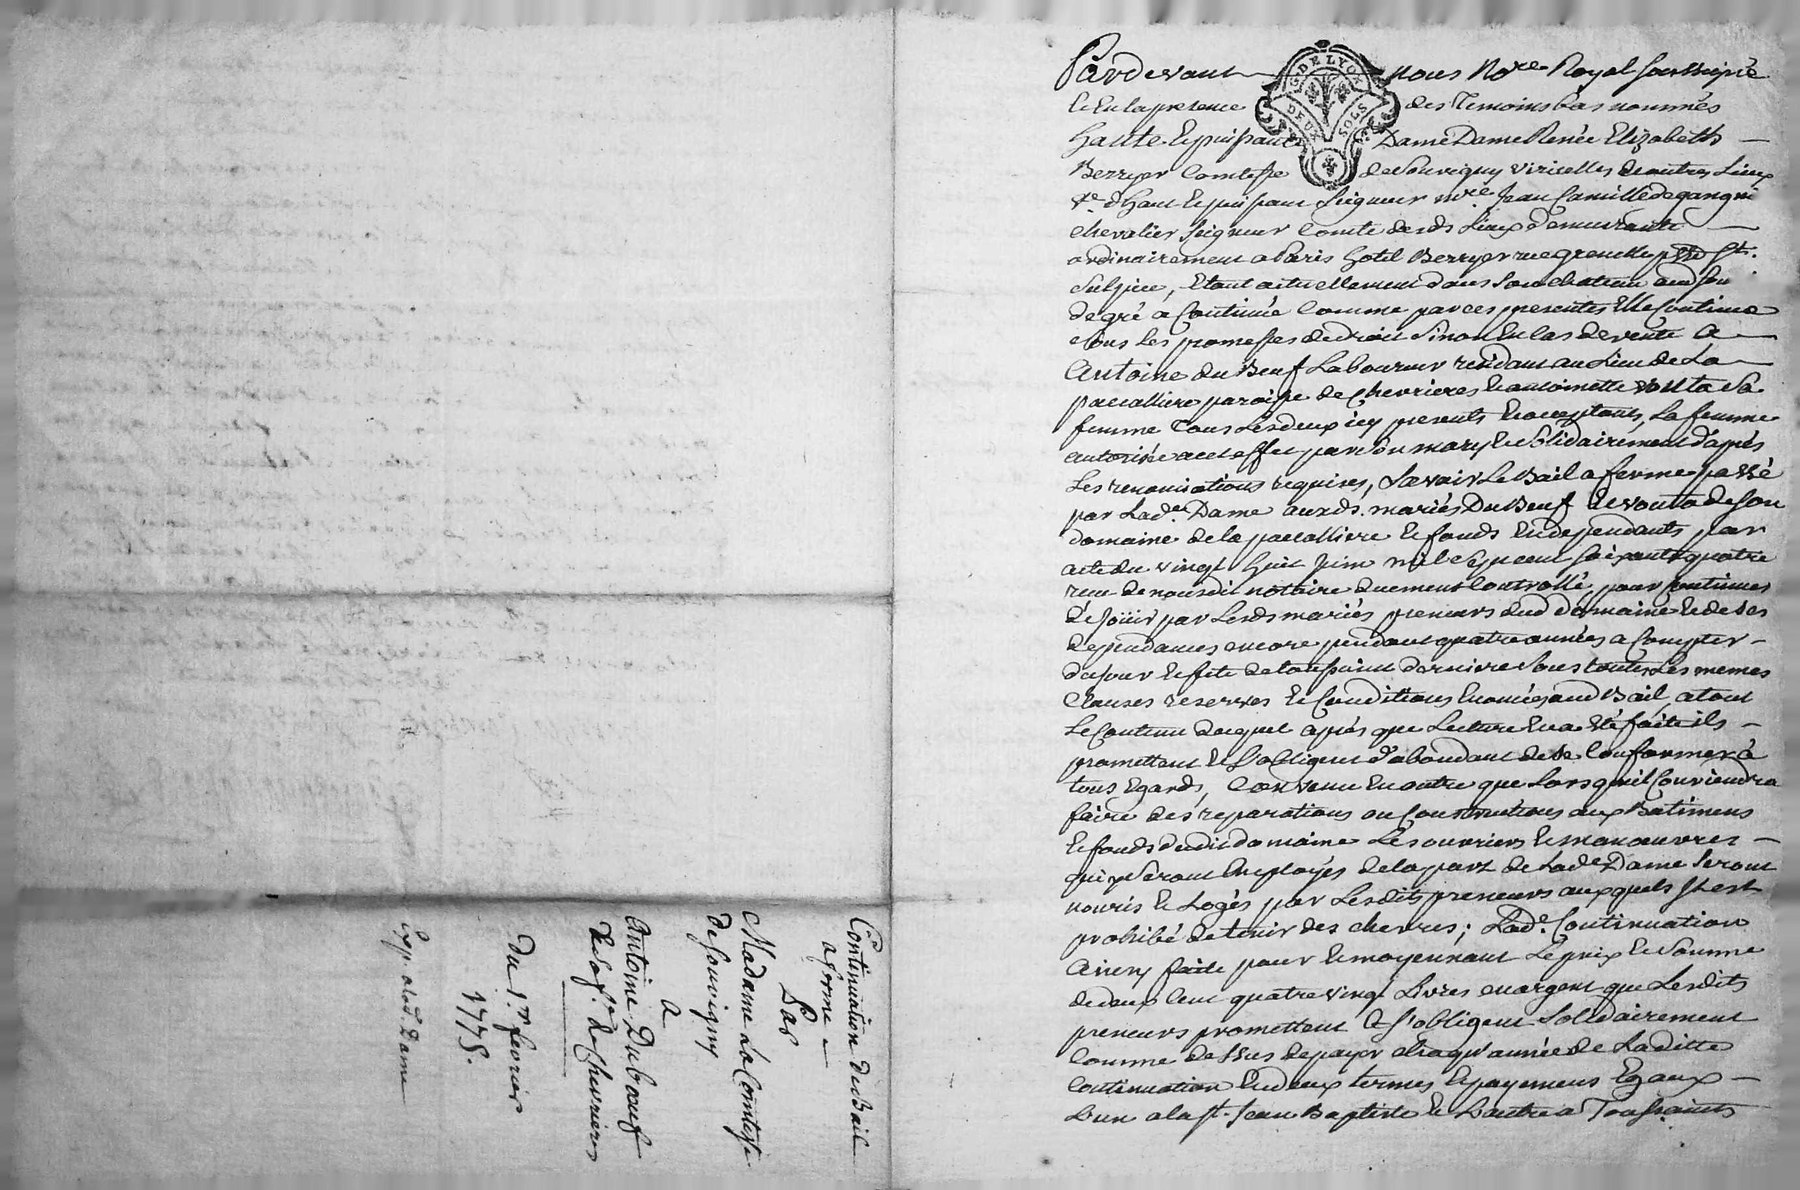 Pardevant nous No.re Royal soussigné
Et En la presence des Temoins bas nommés
Haute Et puissante Dame Dame Renée Elizabeth
Berryer Comtesse de Souvigny viricelles & autres Lieux
v.e d'haut Et puissant Seigneur m.re Jean Camille de gangni
chevalier Seigneur Comte desds Lieux demeurante
ordinairement a Paris hotel Berryer rue grenelle psse St.
Sulpice, Etant actuellement dans son chateau
de gré a Continué Comme par ces presentes Elle Continue
sous Les promesses de droit Sinon En Cas de vente A
Antoine du Beuf Laboureur residant au Lieu de La
pacalliere paroisse de Chevrieres Et antoinette vouta sa
femme Tous Les deux icy presents Et acceptants, La femme
autorisée a cet effet par son mary Et solidairement d'après
Les renonciations requises, Savoir Le Bail a ferme passé
par Lad.e Dame auxds. mariés Du Beuf Et vouta de son
domaine de la pacalliere Et fonds En dependants par
acte du vingt huit Juin mil sept cent soixante quatre
recu de nousdit notaire duement Controllé, pour Continuer
de Joüir par Lesds mariés preneurs dud domaine Et de ses
dependances encore pendant quatre années a Compter
du Jour Et fete de toussaint derniere sous toutes Les memes
Clauses reserves Et Conditions Enoncées aud Bail, a tout
Le Contenu duquel après que Lecture En a Eté faite ils
promettent Et s'obligent d'abondant de se Conformer à
tous Egards, Convenu En outre que Lorsqu'il Conviendra
faire des reparations ou Constructions aux Batimens
Et fonds dudit domaine Les ouvriers Et manoeuvres
qui y seront Employés de la part de Lad.e Dame seront
nouris Et Logés par Lesdits preneurs auxquels Il est
prohibé de tenir des chevres; Lad.e Continuation
Ainsy faite pour Et moyennant Le prix Et somme
de deux Cent quatre vingt Livres en argent que Lesdits
preneurs promettent Et s'obligent solidairement
Comme dessus de payer chaqu'année de Laditte
Continuation En deux termes Et payemens Egaux
L'un a la St. Jean Baptiste Et L'autre à Toussaints
G. DE LYON
DEUX SOLS
Continuation de Bail
a ferme
Par
Madame La Comtesse
de Souvigny
A
Antoine Dubœuf
de Chevrieres
Du 1.er fevrier
1775.
Exp. a lad. Dame